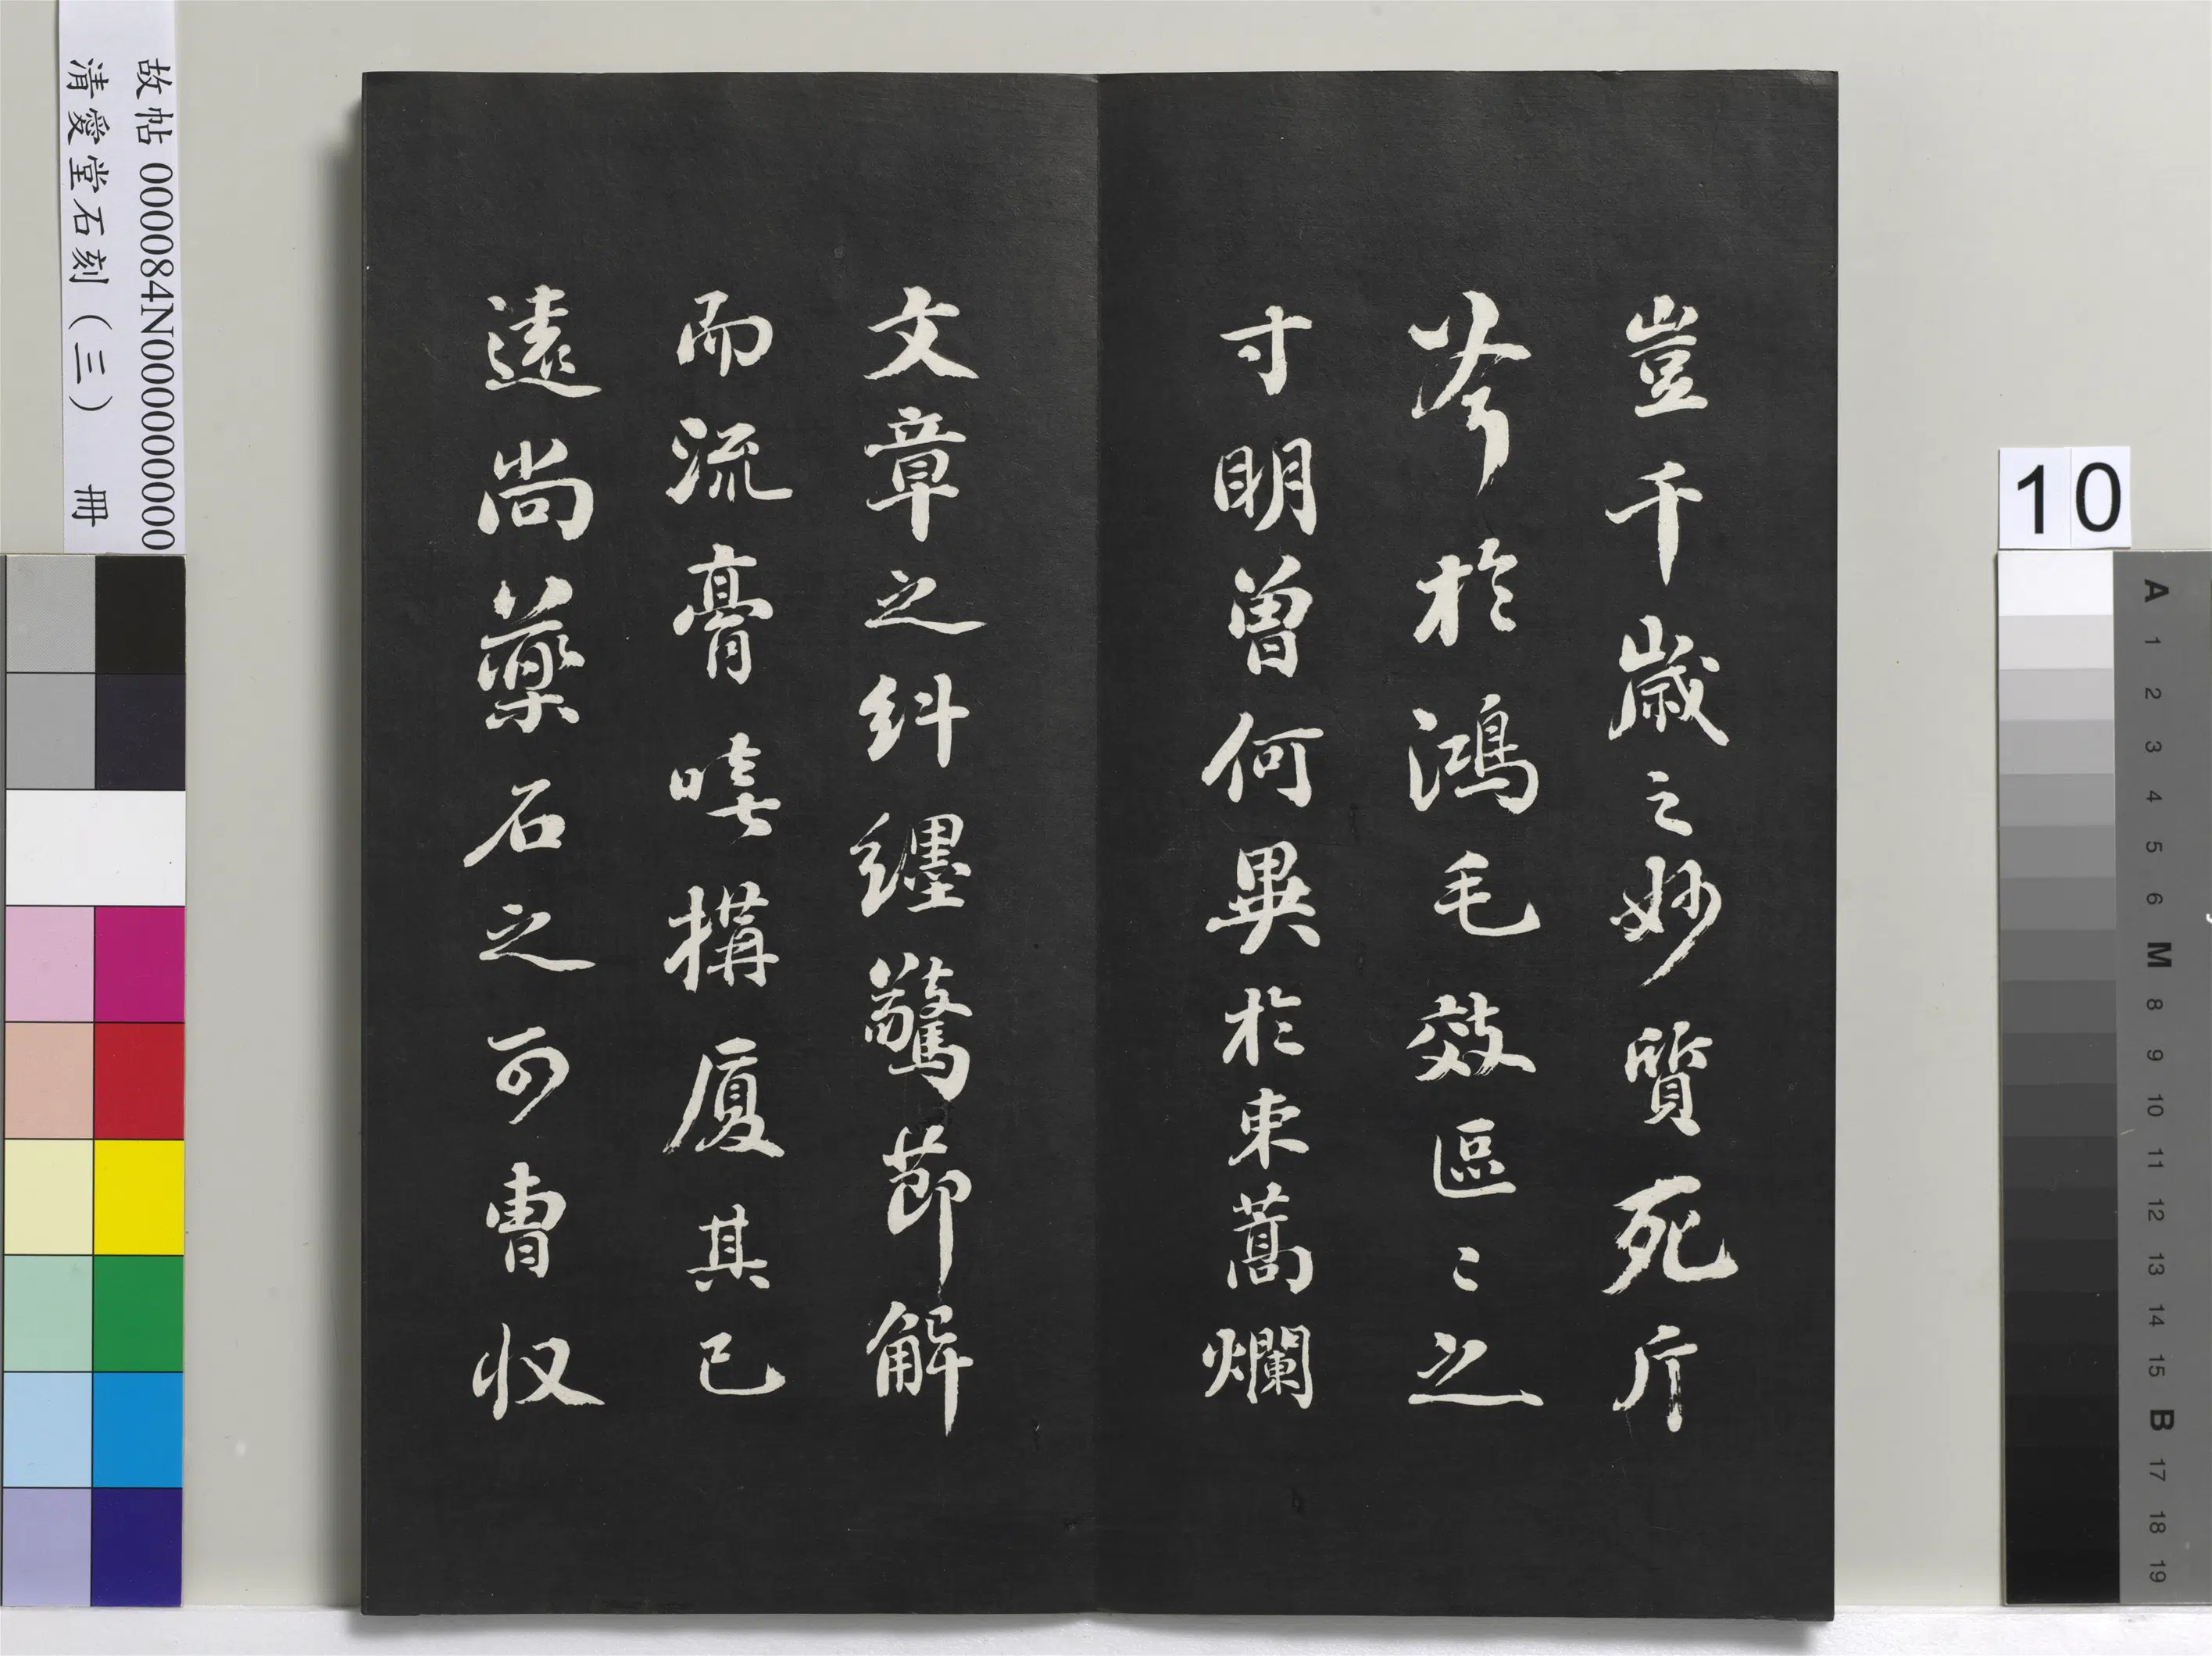 豈千歲之妙質死斤
斧於鴻毛效區〻之
寸明曾何異於束蒿爛
文章之糾纏驚節解
而流膏嘻構廈其已
遠尚藥石之可曹收
故帖 000084N000000000
清愛堂石刻（三） 冊
10
A
1
2
3
4
5
6
M
8
9
10
11
12
13
14
15
B
17
18
19